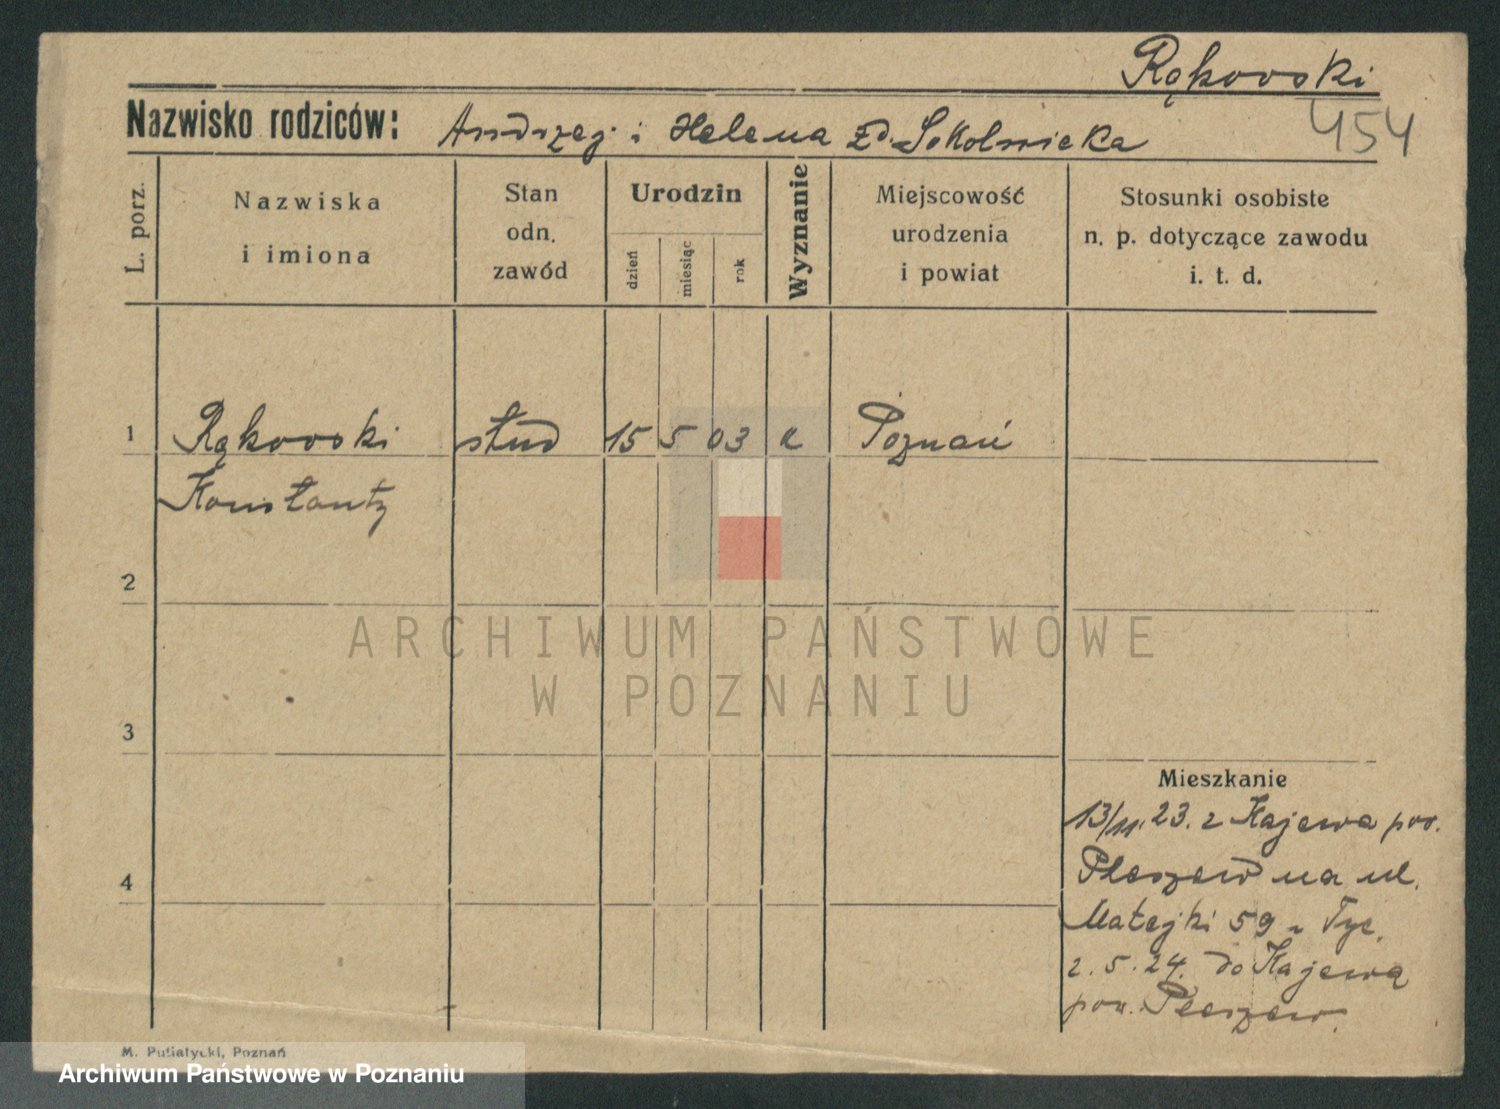 Rąkowski
454
Nazwisko rodziców: Andrzej i Helena zd. Sokolnicka
L. porz.
Nazwiska i imiona
Stan odn. zawód
Urodzin
dzień
miesiąc
rok
Wyznanie
Miejscowość urodzenia i powiat
Stosunki osobiste n. p. dotyczące zawodu i. t. d.
1 Rąkowski stud 15 5 03 k Poznań
Konstanty
2
ARCHIWUM PAŃSTWOWE
W POZNANIU
3
Mieszkanie
13/11. 23. z Kajewa pow.
4
Pleszew na ul.
Matejki 59
2. 5. 24. do Kajewa
pow. Pleszew.
M. Putiatycki, Poznań
Archiwum Państwowe w Poznaniu